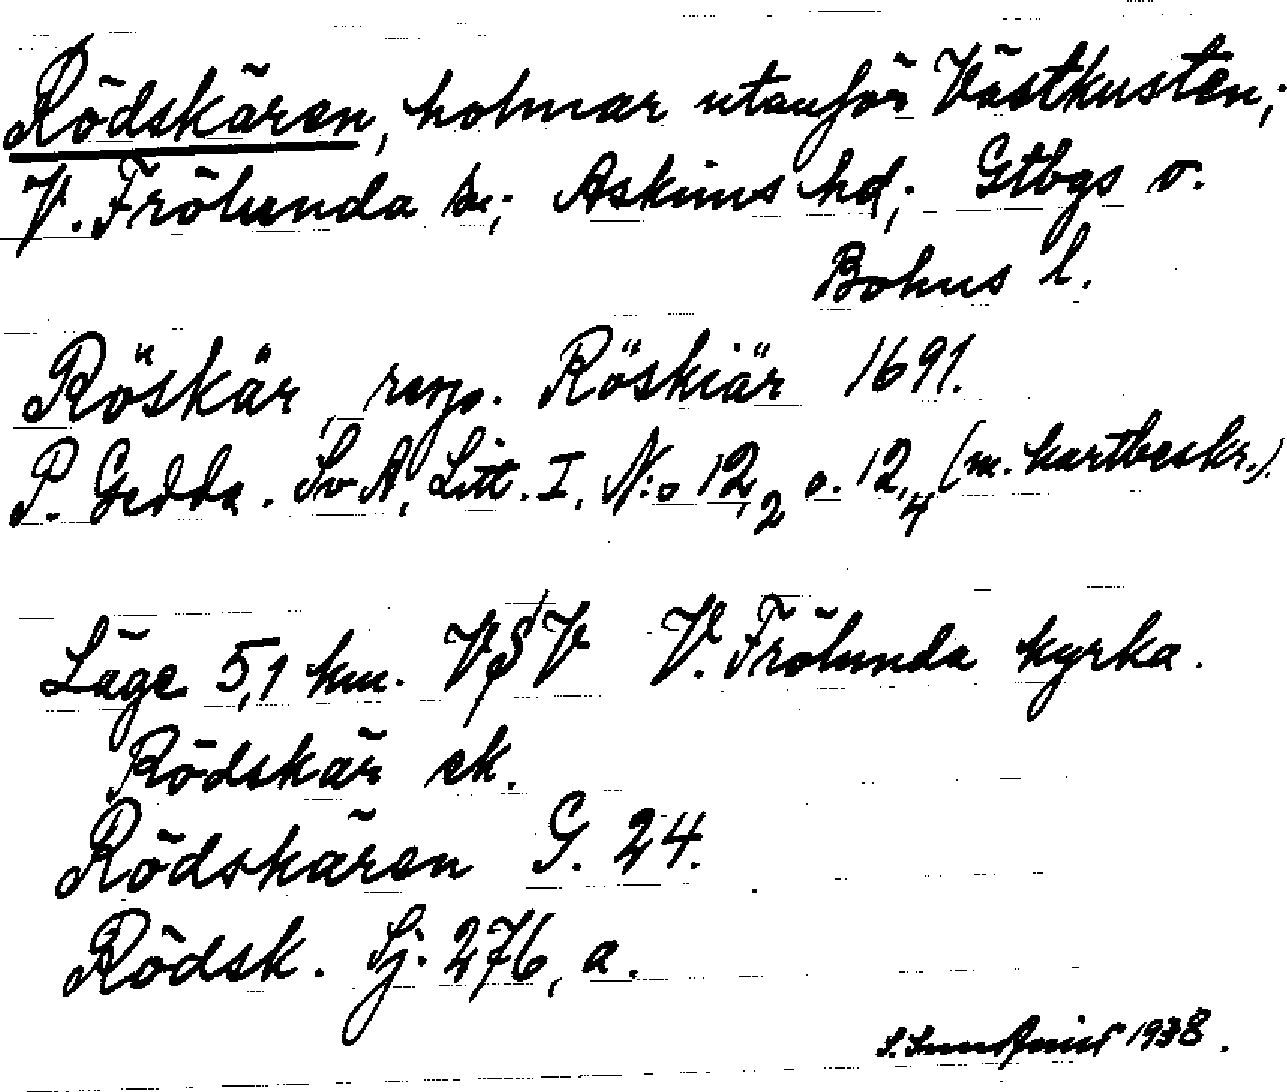 Rödskären, holmar utanför Västkusten;
V. Frölunda sn; Askims hd; Gtbgs o.
Bohus l.
Röskår, resp. Röskiär 1691.
P. Gedda. SvA, Litt. I, N:o 12,2 o. 12,4 (m. kartbeskr.).
Läge 5,1 km. VSV V. Frölunda kyrka.
Rödskär ek.
Rödskären G. 24.
Rödsk. Sj. 276, a.
1938.